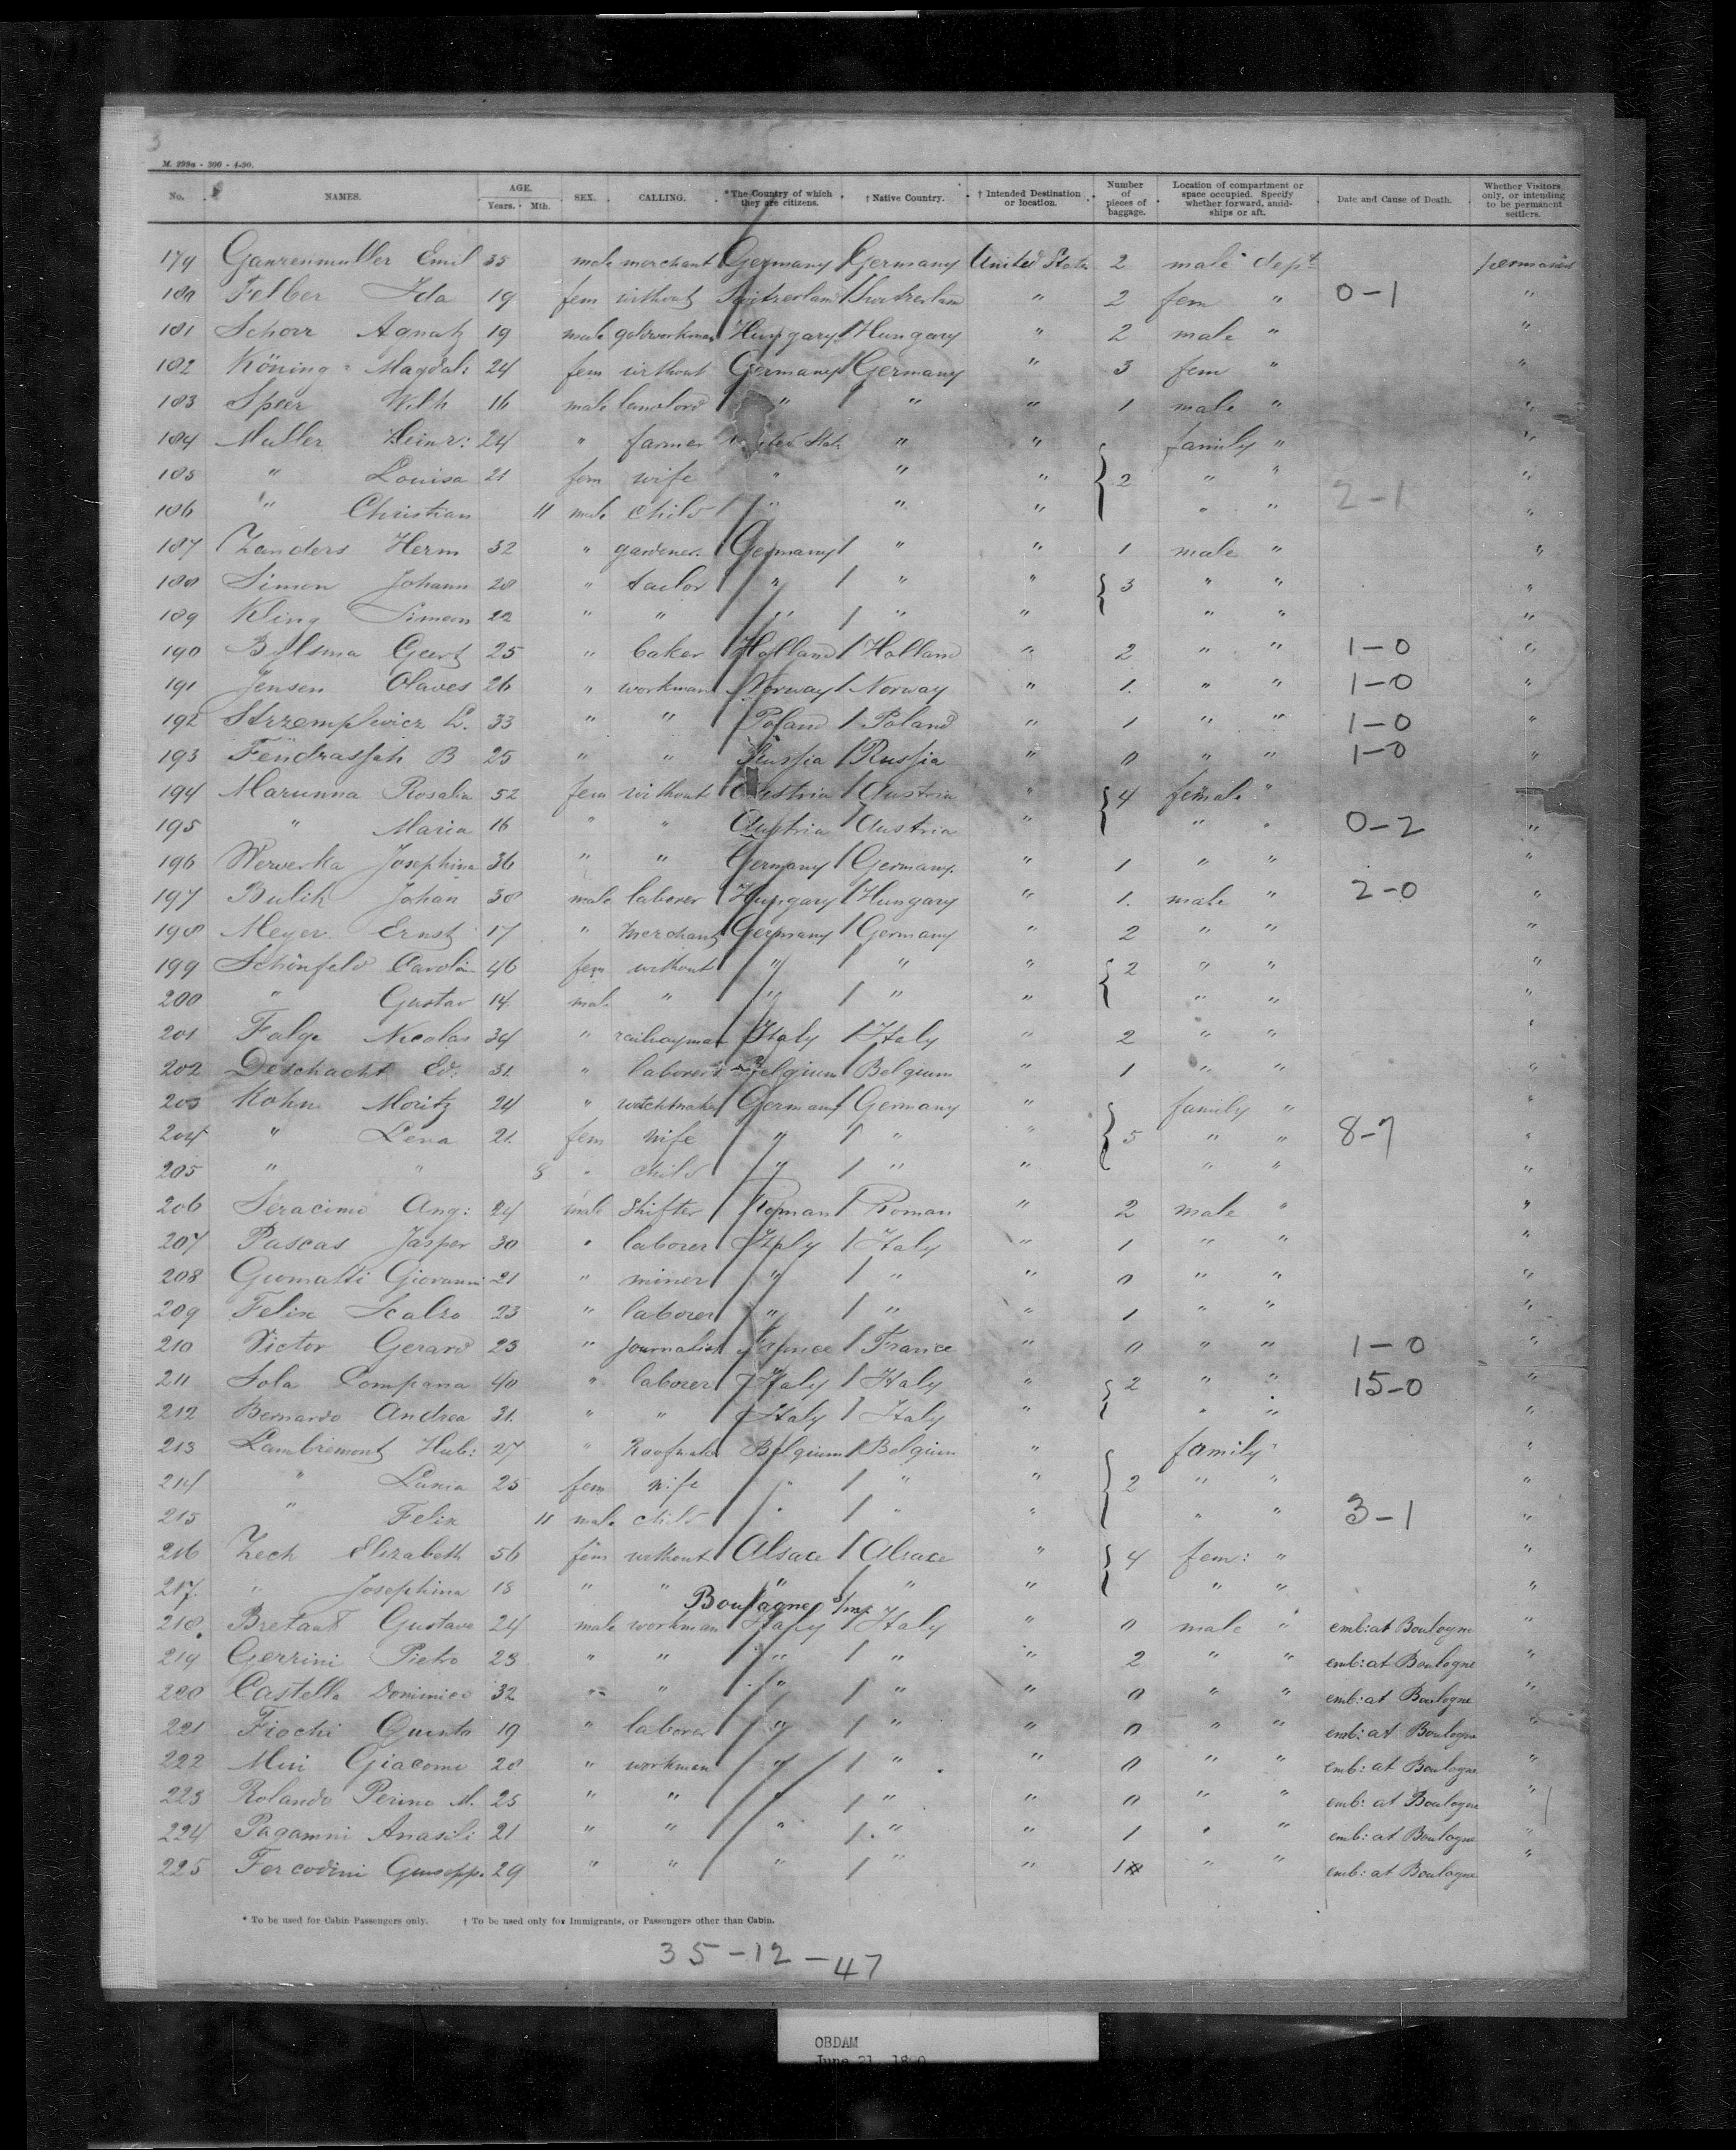 3
M. 299a - 306 - 4-90.
No. NAMES. AGE. Years. Mth. SEX. CALLING. * The Country of which they are citizens. † Native Country. † Intended Destination or location. Number of pieces of baggage. Location of compartment or space occupied. Specify whether forward, amidships or aft. Date and Cause of Death. Whether Visitors only, or intending to be permanent settlers.
179 Ganzenmuller Emil 35 male merchant Germany / Germany United States 2 male dept permanent
180 Felber Ida 19 fem without Switzerland / Switzerland " 2 fem " 0-1 "
181 Schorr Agnatz 19 male goldworkman Hungary / Hungary " 2 male " "
182 Köning Magdal: 24 fem without Germany / Germany " 3 fem " "
183 Speer Wilh 16 male landlord " / " " 1 male " "
184 Muller Heinr: 24 " farmer United Stat. " " family " "
185 " Louisa 21 fem wife " " " 2 " " "
186 " Christian 11 male child / " " " " " 2-1 "
187 Zanders Herm 32 " gardener Germany / " " 1 male " "
188 Simon Johann 28 " tailor " / " " 3 " " "
189 Kling Simeon 22 " " " / " " " " "
190 Bylsma Geert 25 " baker Holland / Holland " 2 " " 1-0 "
191 Jensen Olaves 26 " workman Norway / Norway " 1. " " 1-0 "
192 Strzemplewicz L. 33 " " Poland / Poland " 1 " " 1-0 "
193 B 25 " " Russia / Russia " 0 " " 1-0 "
194 Marunna Rosalia 52 fem without Austria / Austria " 4 female "
195 " Maria 16 " " Austria / Austria " " " 0-2 "
196 Werverka Josephina 36 " " Germany / Germany. " 1 " " "
197 Bulik Johan 38 male laborer Hungary / Hungary " 1. male " 2-0 "
198 Meyer Ernst 17 " merchant Germany / Germany " 2 " " "
199 Schönfeld Carolin 46 fem without " / " " 2 " " "
200 " Gustav 14 male " " / " " " " "
201 Falge Nicolas 34 " railwayman Italy / Italy " 2 " " "
202 Deschacht Ed. 31. " laborer Belgium / Belgium " 1 " " "
203 Kohn Moritz 24 " watchmaker Germany / Germany " family " "
204 " Lena 21. fem wife " / " " 5 " " 8-7 "
205 " " 8 " child " / " " " " "
206 Seracimo Ang: 24 male Shifter Roman / Roman " 2 male " "
207 Pascas Jasper 30 " laborer Italy / Italy " 1 " " "
208 Giomatti Giovanni 21 " miner " / " " 0 " " "
209 Felix Scalzo 23 " laborer " / " " 1 " " "
210 Victor Gerard 23 " journalist France / France " 0 " " 1-0 "
211 Sola Compana 40 " laborer Italy / Italy " 2 " " 15-0 "
212 Bernardo Andrea 31. " " Italy / Italy " " " "
213 Lambremont Hub: 27 " Roofmaker Belgium / Belgium " family " "
214 " 25 fem wife " / " " 2 " " "
215 " Felix 11 male child " / " " " " 3-1 "
216 Zech Elizabeth 56 fem without Alsace / Alsace " 4 fem: " "
217. " Josephina 18 " " " / " " " " "
Boulogne s/mer
218. Bretaut Gustave 24 male workman Italy / Italy " 0 male " emb: at Boulogne "
219 Gerrini Pietro 23 " " " / " " 2 " " emb: at Boulogne "
220 Castella Dominico 32 " " " / " " 0 " " emb: at Boulogne "
221 Fiochi Quinto 19 " laborer " / " " 0 " " emb: at Boulogne "
222 Giacomo 28 " workman " / " " 0 " " emb: at Boulogne "
223 Rolando Perino M. 25 " " " / " " 0 " " emb: at Boulogne "
224 Paganni Anasili 21 " " " / " " 1 " " emb: at Boulogne "
225 Forcodini Giusepp. 29 " " " / " " 1 " " emb: at Boulogne "
* To be used for Cabin Passengers only. † To be used only for Immigrants, or Passengers other than Cabin.
35-12-47
OBDAM
June 21, 1890